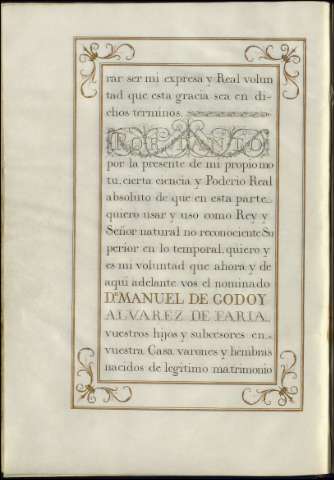 rar ser mi expresa y Real volun
tad que esta gracia sea en di-
chos terminos.
POR TANTO
por la presente de mi propio mo
tu, cierta ciencia y Poderio Real
absoluto de que en esta parte
quiero usar y uso como Rey y
Señor natural no reconociente Su
perior en lo temporal, quiero y
es mi voluntad que ahora y de
aqui adelante vos el nominado
Dn. MANUEL DE GODOY
ALVAREZ DE FARIA,
vuestros hijos y subcesores en
vuestra Casa, varones y hembras
nacidos de legitimo matrimonio